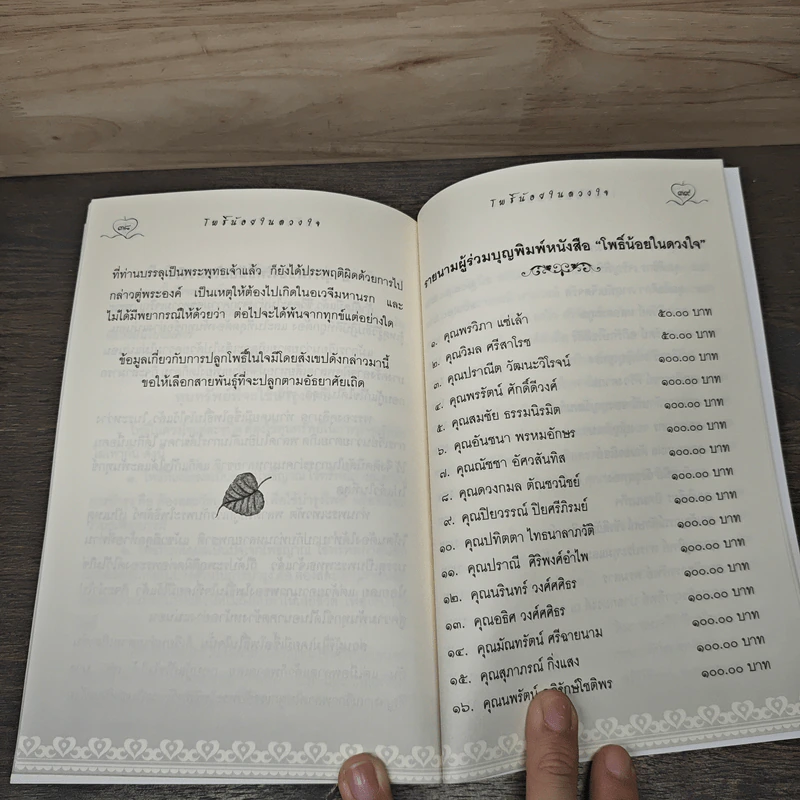 ๓๘
โพธิ์น้อยในดวงใจ
ที่ท่านบรรลุเป็นพระพุทธเจ้าแล้ว ก็ยังได้ประพฤติผิดด้วยการไป
กล่าวตู่พระองค์ เป็นเหตุให้ต้องไปเกิดในอเวจีมหานรก และ
ไม่ได้มีพยากรณ์ให้ด้วยว่า ต่อไปจะได้พ้นจากทุกข์แต่อย่างใด
ข้อมูลเกี่ยวกับการปลูกโพธิ์ในใจมีโดยสังเขปดังกล่าวมานี้
ขอให้เลือกสายพันธุ์ที่จะปลูกตามอัธยาศัยเถิด
โพธิ์น้อยในดวงใจ
๓๙
รายนามผู้ร่วมบุญพิมพ์หนังสือ “โพธิ์น้อยในดวงใจ”
๑. คุณพรวิภา แซ่เล้า ๕๐.๐๐ บาท
๒. คุณวิมล ศรีสาโรช ๕๐.๐๐ บาท
๓. คุณปราณีต วัฒนะวิโรจน์ ๑๐๐.๐๐ บาท
๔. คุณพรรัตน์ ศักดิ์ดีวงศ์ ๑๐๐.๐๐ บาท
๕. คุณสมชัย ธรรมนิรมิต ๑๐๐.๐๐ บาท
๖. คุณอันชนา พรหมอักษร ๑๐๐.๐๐ บาท
๗. คุณณัชชา อัศวสันทิส ๑๐๐.๐๐ บาท
๘. คุณดวงกมล ตัณชวนิชย์ ๑๐๐.๐๐ บาท
๙. คุณปิยวรรณ์ ปิยศรีภิรมย์ ๑๐๐.๐๐ บาท
๑๐. คุณปทิตตา ไทธนาลาภวัติ ๑๐๐.๐๐ บาท
๑๑. คุณปราณี ศิริพงศ์อำไพ ๑๐๐.๐๐ บาท
๑๒. คุณนรินทร์ วงศ์ศศิธร ๑๐๐.๐๐ บาท
๑๓. คุณอธิศ วงศ์ศศิธร ๑๐๐.๐๐ บาท
๑๔. คุณมัณทรัตน์ ศรีฉายนาม ๑๐๐.๐๐ บาท
๑๕. คุณสุภาภรณ์ กิ่งแสง ๑๐๐.๐๐ บาท
๑๖. คุณนพรัตน์ ๑๐๐.๐๐ บาท